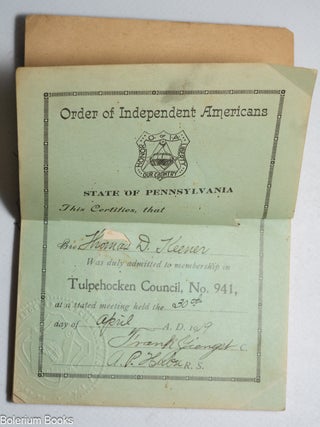 Order of Independent Americans
O of A
HONOR
LIBERTY
OUR COUNTRY
STATE OF PENNSYLVANIA
This Certifies, that
Bro Thomas D. Keener
Was duly admitted to membership in
Tulpehocken Council, No. 941,
at a stated meeting held the 30th
day of April A. D. 19
Frank C.
A. P. R. S.
Bolerium Books